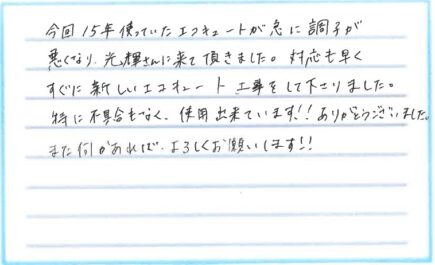 今回15年使っていたエコキュートが急に調子が
悪くなり、光輝さんに来て頂きました。対応も早く
すぐに新しいエコキュート工事をして下さりました。
特に不具合もなく、使用出来ています!!ありがとうございました。
また何かあれば、よろしくお願いします!!